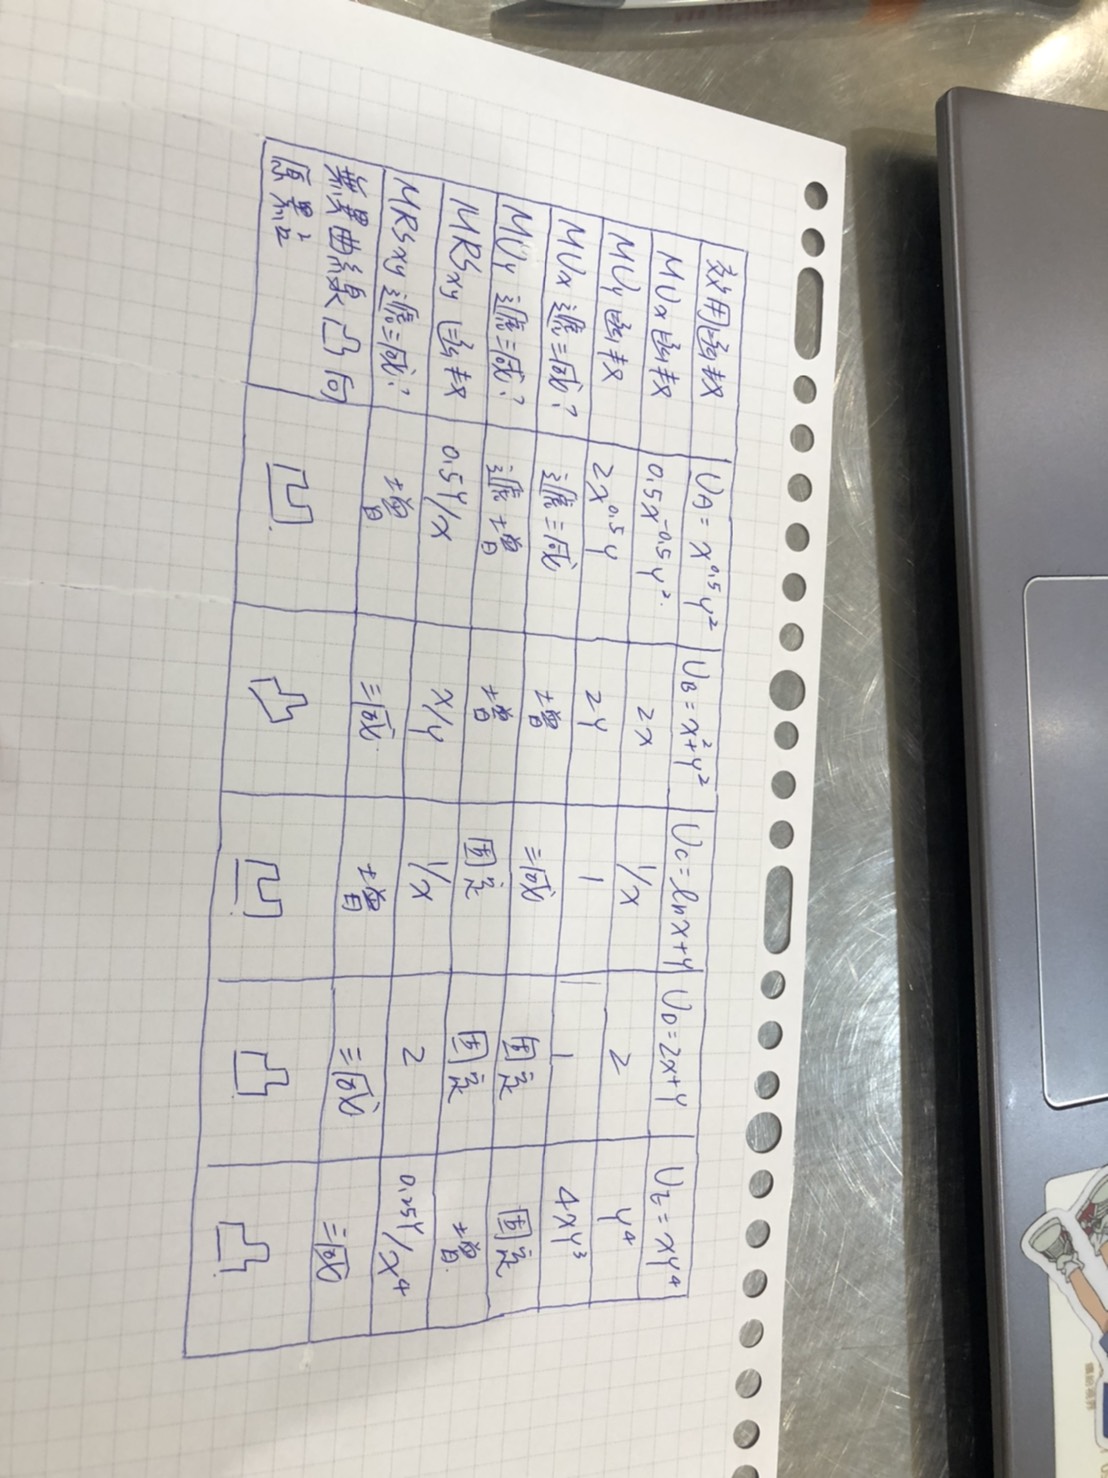 效用函數 U_A = x^0.5 y^2 U_B = x^2+y^2 U_C = ln x+y U_D = 2x+y U_E = xy^4
MUx函數 0.5x^-0.5 y^2. 2x 1/x 2 y^4
MUy函數 2x^0.5 y 2y 1 1 4xy^3
MUx遞減? 遞減 增 減 固定 固定
MUy遞減? 遞增 增 固定 固定 增
MRSxy函數 0.5y/x x/y 1/x 2 0.25y/x^4
MRSxy遞減? 增 減 增 減 減
無異曲線凸向原點? 凹 凸 凹 凸 凸